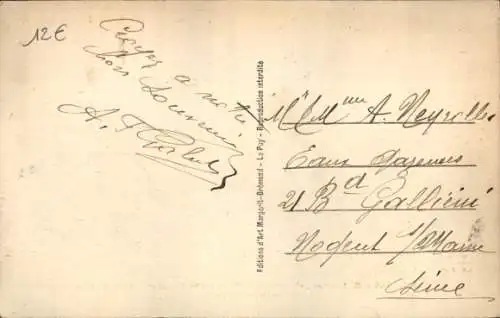 12€
Croyez à notre
bon souvenir
A.
Editions d'Art Margerit-Brémond - Le Puy - Reproduction interdite
Mr & Mme A. Neyrolles
Eaux Gazeuses
21 Bd Galliéni
Nogent s/Marne
Seine